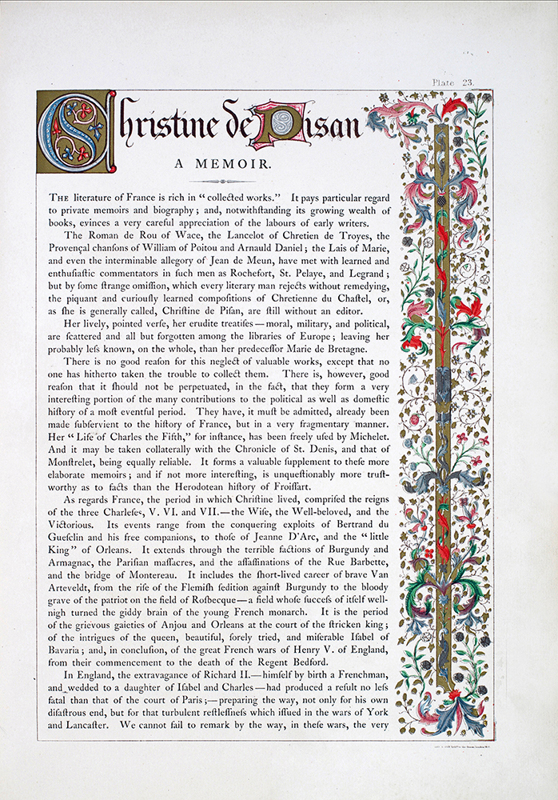 Plate 23.
Christine de Pisan
A MEMOIR.
THE literature of France is rich in “collected works.” It pays particular regard
to private memoirs and biography; and, notwithſtanding its growing wealth of
books, evinces a very careful appreciation of the labours of early writers.
The Roman de Rou of Wace, the Lancelot of Chretien de Troyes, the
Provençal chanſons of William of Poitou and Arnauld Daniel; the Lais of Marie,
and even the interminable allegory of Jean de Meun, have met with learned and
enthuſiaſtic commentators in ſuch men as Rochefort, St. Pelaye, and Legrand;
but by ſome ſtrange omiſſion, which every literary man rejects without remedying,
the piquant and curiouſly learned compoſitions of Chretienne du Chaſtel, or,
as ſhe is generally called, Chriſtine de Piſan, are ſtill without an editor.
Her lively, pointed verſe, her erudite treatiſes—moral, military, and political,
are ſcattered and all but forgotten among the libraries of Europe; leaving her
probably leſs known, on the whole, than her predeceſſor Marie de Bretagne.
There is no good reaſon for this neglect of valuable works, except that no
one has hitherto taken the trouble to collect them. There is, however, good
reaſon that it ſhould not be perpetuated, in the fact, that they form a very
intereſting portion of the many contributions to the political as well as domeſtic
hiſtory of a moſt eventful period. They have, it muſt be admitted, already been
made ſubſervient to the hiſtory of France, but in a very fragmentary manner.
Her “Life of Charles the Fifth,” for inſtance, has been freely uſed by Michelet.
And it may be taken collaterally with the Chronicle of St. Denis, and that of
Monſtrelet, being equally reliable. It forms a valuable ſupplement to theſe more
elaborate memoirs; and if not more intereſting, is unqueſtionably more truſt-
worthy as to facts than the Herodotean hiſtory of Froiſſart.
As regards France, the period in which Chriſtine lived, compriſed the reigns
of the three Charleſes, V. VI. and VII.—the Wiſe, the Well-beloved, and the
Victorious. Its events range from the conquering exploits of Bertrand du
Gueſclin and his free companions, to thoſe of Jeanne D'Arc, and the “little
King” of Orleans. It extends through the terrible factions of Burgundy and
Armagnac, the Pariſian maſſacres, and the aſſaſſinations of the Rue Barbette,
and the bridge of Montereau. It includes the ſhort-lived career of brave Van
Arteveldt, from the riſe of the Flemiſh ſedition againſt Burgundy to the bloody
grave of the patriot on the field of Roſbecque—a field whoſe ſucceſs of itſelf well-
nigh turned the giddy brain of the young French monarch. It is the period
of the grievous gaieties of Anjou and Orleans at the court of the ſtricken king;
of the intrigues of the queen, beautiful, ſorely tried, and miſerable Iſabel of
Bavaria; and, in concluſion, of the great French wars of Henry V. of England,
from their commencement to the death of the Regent Bedford.
In England, the extravagance of Richard II.—himſelf by birth a Frenchman,
and wedded to a daughter of Iſabel and Charles—had produced a reſult no leſs
fatal than that of the court of Paris;—preparing the way, not only for his own
diſaſtrous end, but for that turbulent reſtleſſneſs which iſſued in the wars of York
and Lancaſter. We cannot fail to remark by the way, in theſe wars, the very